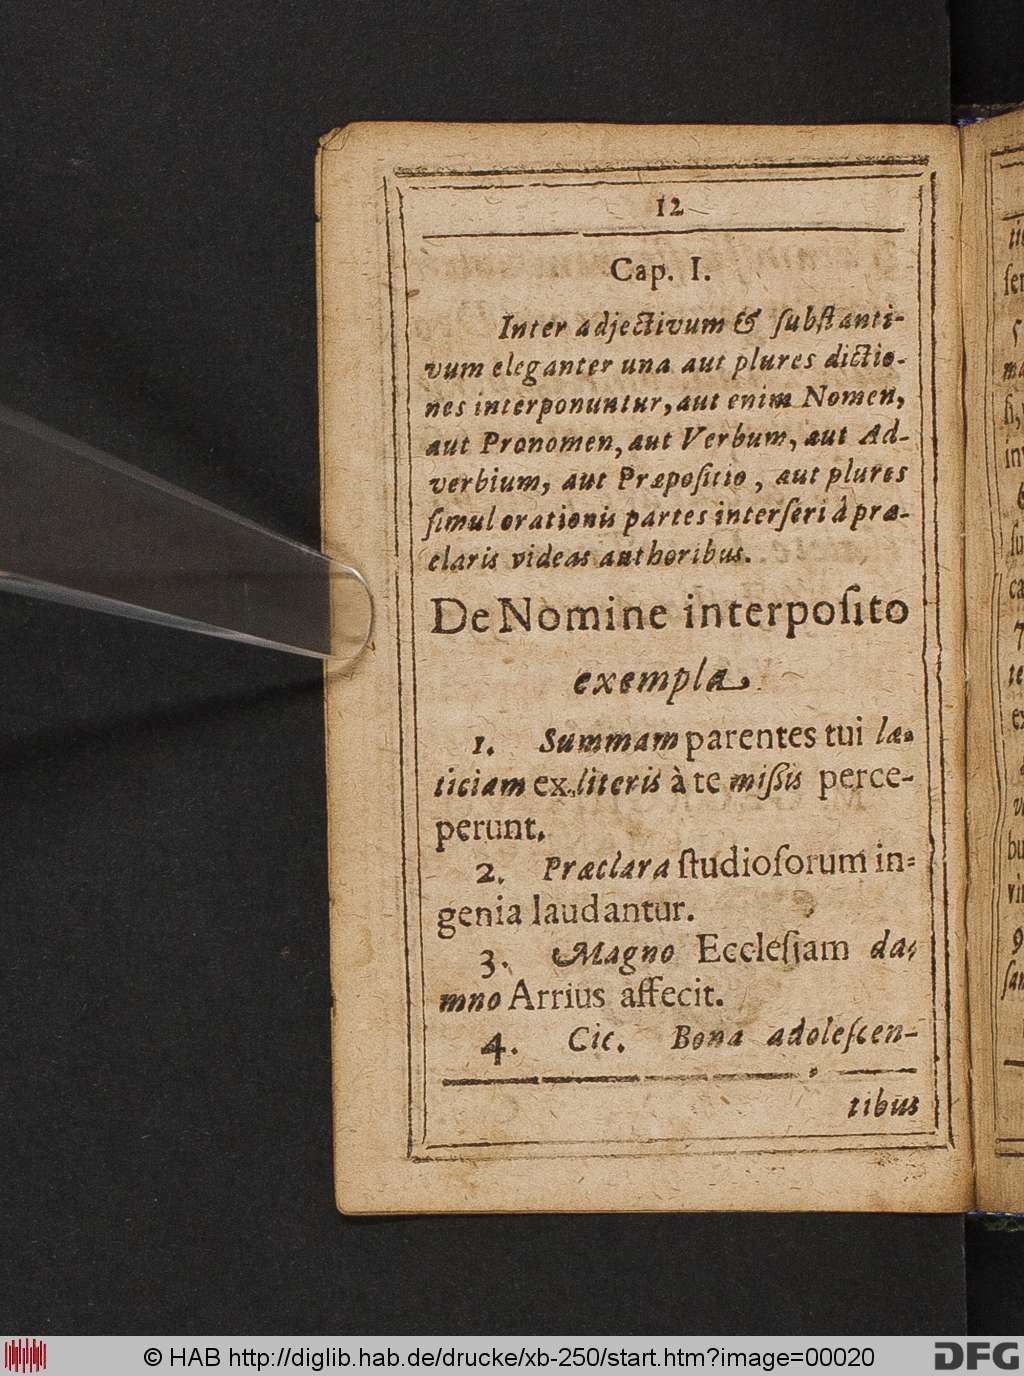 12
Cap. I.
Inter adjectivum & ſubſtanti-
vum eleganter una aut plures dictio-
nes interponuntur, aut enim Nomen,
aut Pronomen, aut Verbum, aut Ad-
verbium, aut Præpoſitio, aut plures
ſimul orationis partes interſeri à præ-
claris videas authoribus.
De Nomine interpoſito
exempla.
1. Summam parentes tui læ-
ticiam ex literis à te miſsis perce-
perunt.
2. Præclara ſtudioſorum in-
genia laudantur.
3. Magno Eccleſiam da-
mno Arrius affecit.
4. Cic. Bona adoleſcen-
tibus
© HAB http://diglib.hab.de/drucke/xb-250/start.htm?image=00020
DFG